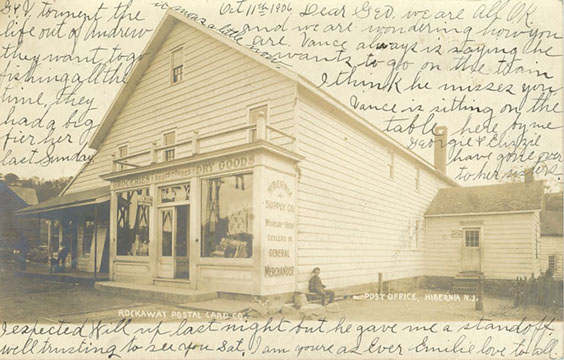 Oct 11th 1906 Dear Geo, we are all OK
and we are wondering how you
are. Vance always is saying she
wants to go on the team
I think he misses you
Vance is sitting on the
table here by me
Georgie &
have gone over
to her sisters
G & V torment the
life out of Andrew
they want to go
fishing all the
time, they
had a big
fier her
last Sunday.
it was a little
GROCERIES POST OFFICE DRY GOODS
HIBERNIA
SUPPLY CO.
WHOLESALE - RETAIL
DEALERS IN
GENERAL
MERCHANDISE
ROCKAWAY POSTAL CARD CO.
POST OFFICE HIBERNIA N.J.
I expected Will up last night but he gave me a standoff,
well trusting to see you Sat. I am yours as Ever Emilie love to all.